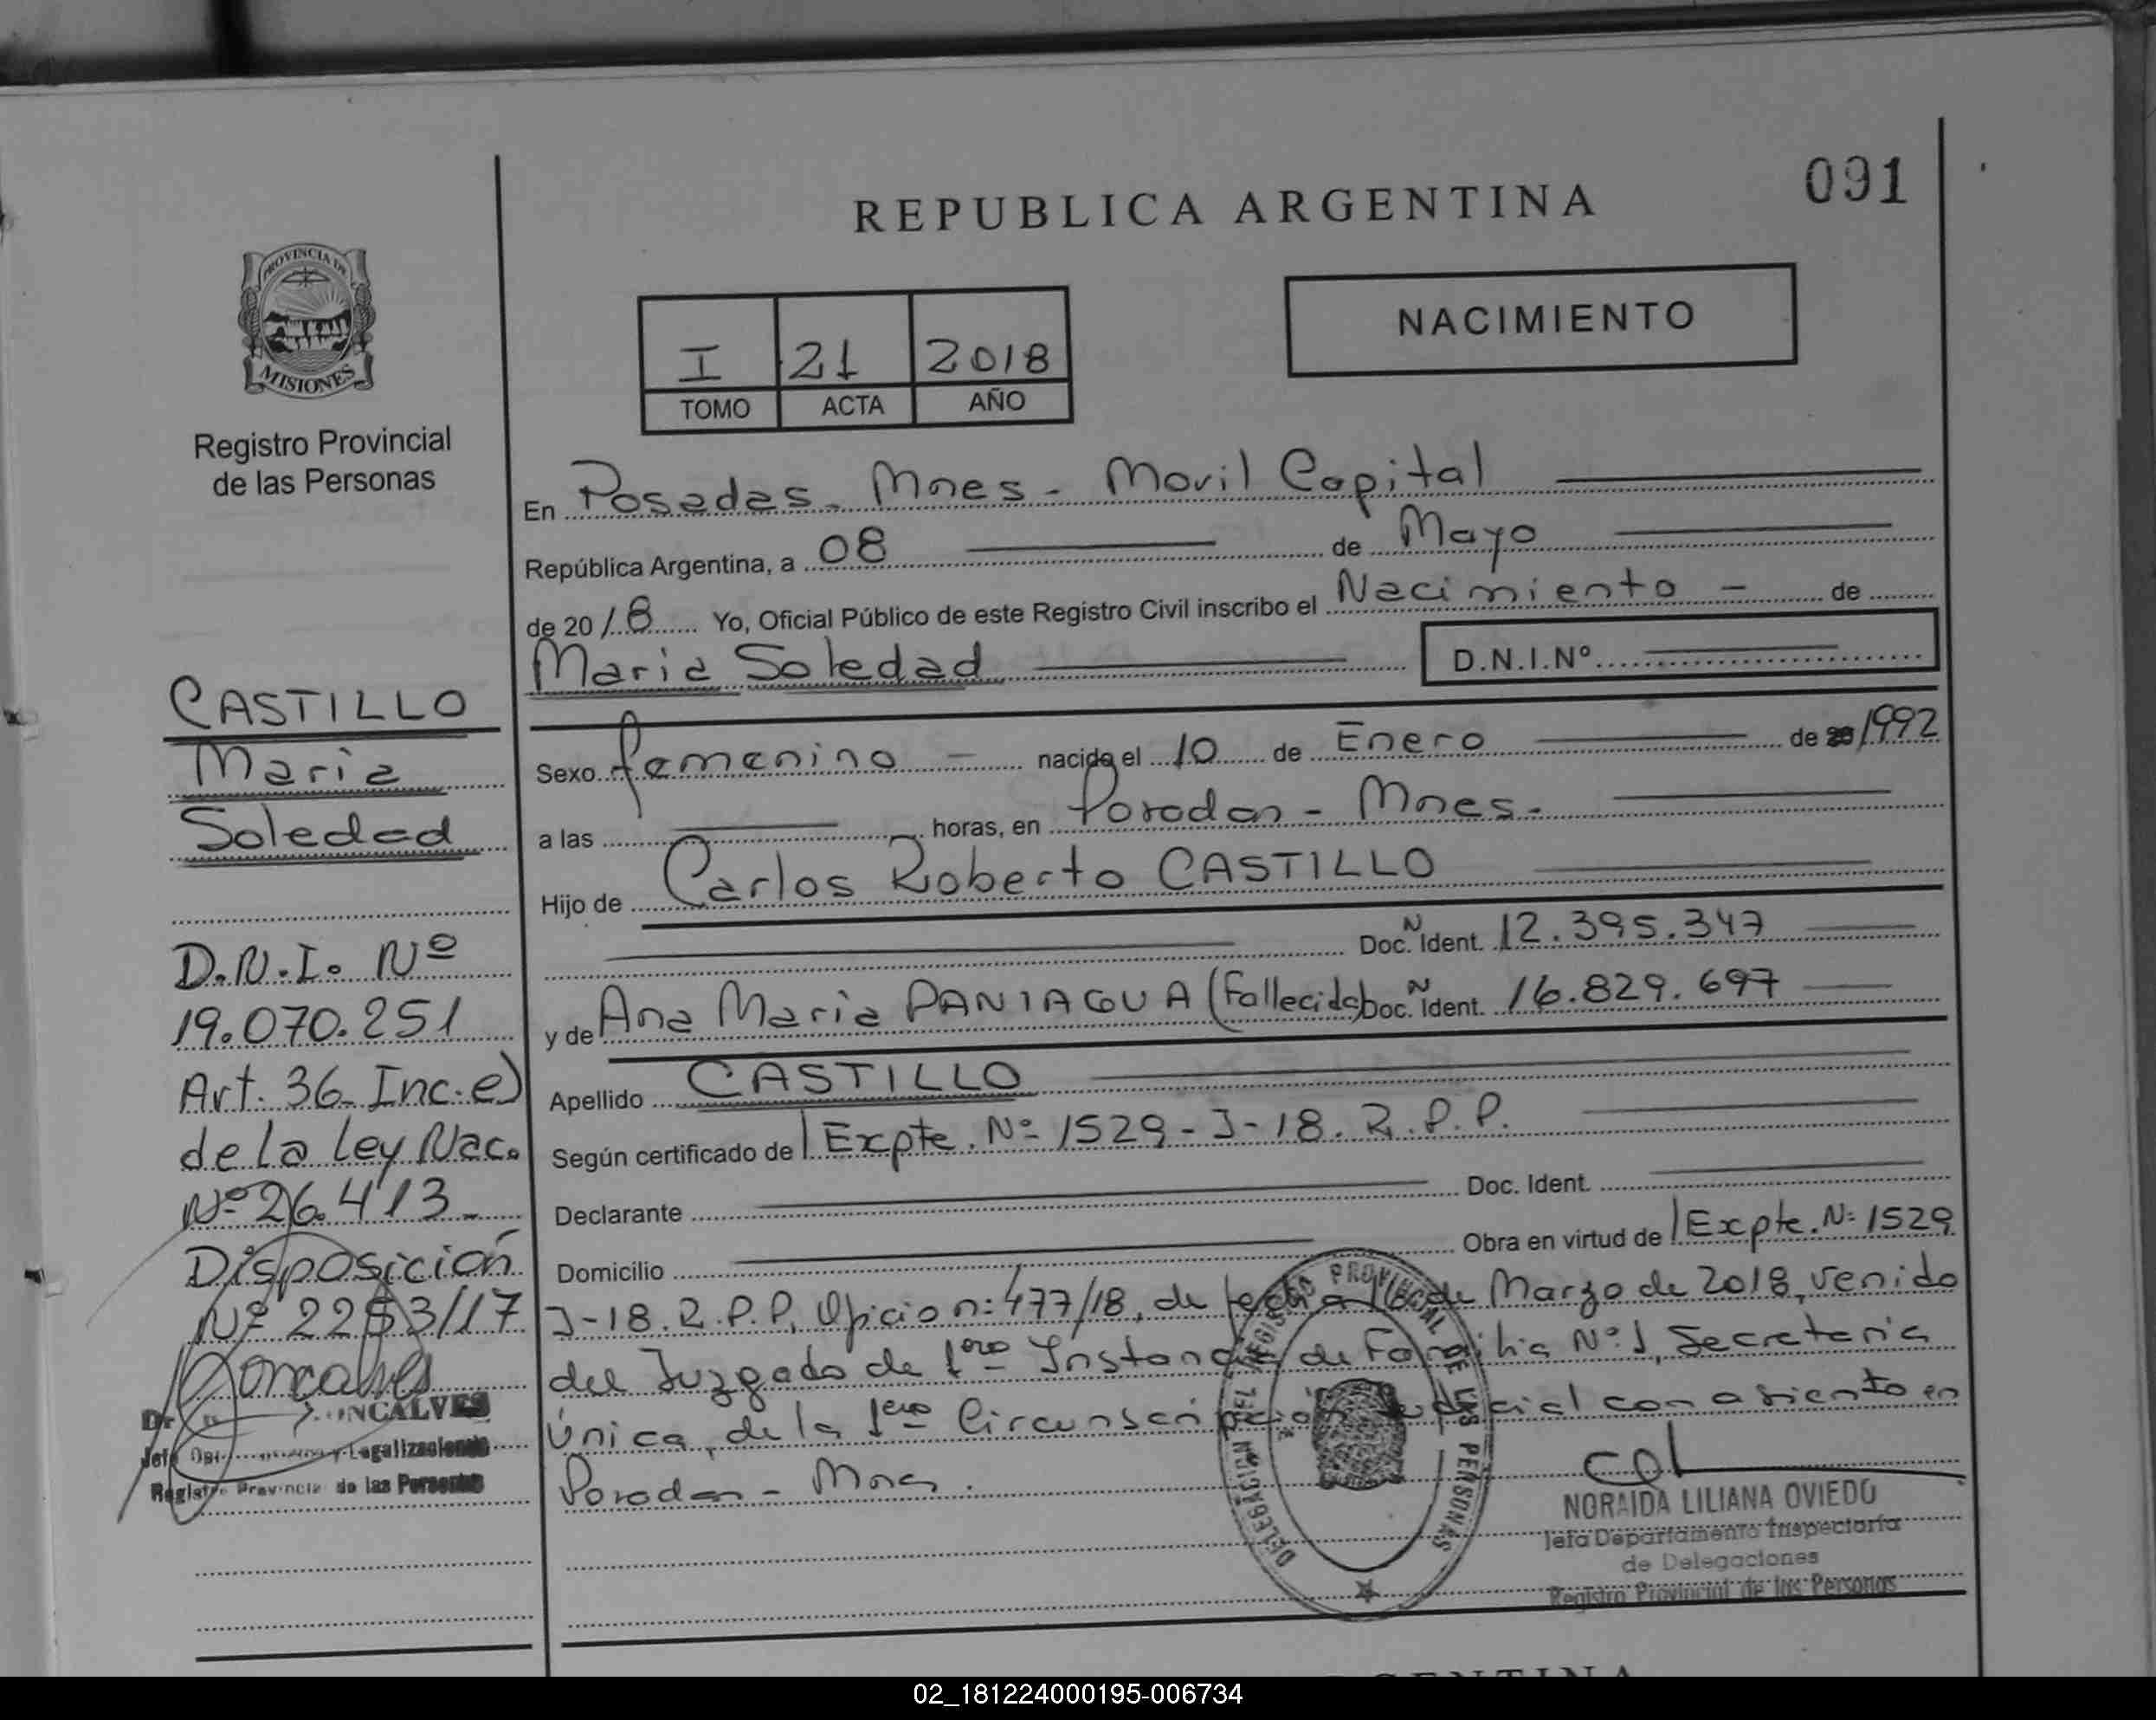 091
REPUBLICA ARGENTINA
PROVINCIA DE
MISIONES
Registro Provincial
de las Personas
NACIMIENTO
I 21 2018
TOMO ACTA AÑO
En Posadas. Mnes - Movil Capital
República Argentina, a 08 de Mayo
de 2018 Yo, Oficial Público de este Registro Civil inscribo el Nacimiento - de
Maria Soledad D.N.I.Nº
Sexo femenino - nacida el 10 de Enero de 1992
a las horas, en Posadas - Mnes.
Hijo de Carlos Roberto CASTILLO
Doc. Nº Ident. 12.395.347
y de Ana Maria PANIAGUA (Fallecida) Doc. Nº Ident. 16.829.697
Apellido CASTILLO
Según certificado de Expte. Nº 1529-J-18. R.P.P.
Declarante Doc. Ident.
Domicilio Obra en virtud de Expte. Nº 1529
J-18. R.P.P. Oficio nº 477/18, de fecha 16 de Marzo de 2018, venido
del Juzgado de 1era Instancia de Familia Nº 1, Secretaria
Única, de la 1era Circunscripción Judicial con asiento en
Posadas - Mnes.
CASTILLO
Maria
Soledad
D.N.I. Nº
19.070.251
Art. 36- Inc. e)
de la Ley Nac.
Nº 26.413-
Disposición
Nº 2253/17
Goncalves
Registro Provincial de las Personas
DELEGACION DEL REGISTRO PROVINCIAL DE LAS PERSONAS
NORAIDA LILIANA OVIEDO
Jefa Departamento Inspectoría
de Delegaciones
Registro Provincial de las Personas
02_181224000195-006734